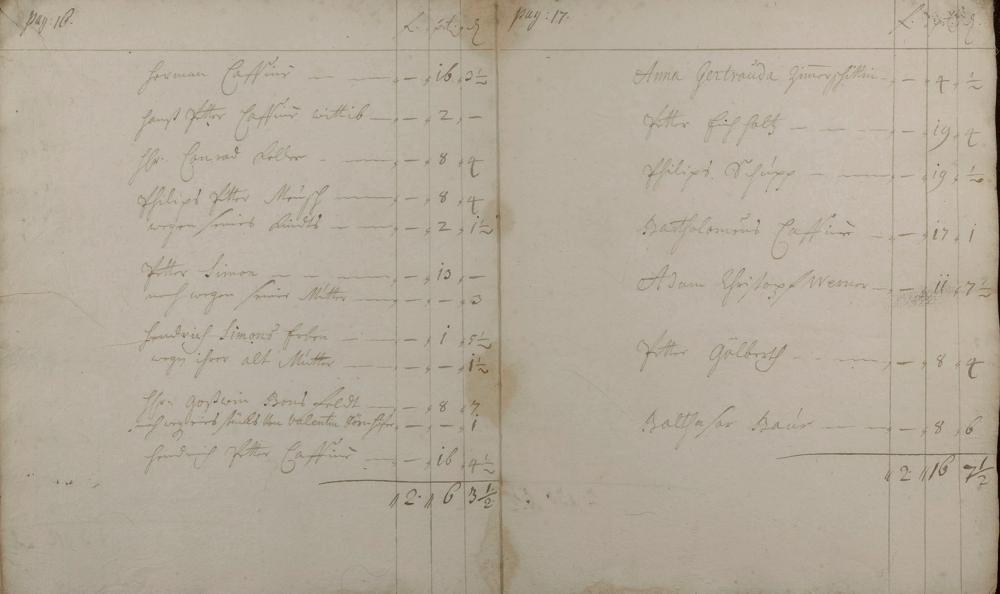 pag: 16.
L. ß. ₰
Herman Cassius — — — 16 3½
Hanß Peter Cassius wittib — — 2 —
Hr. Conrad — — — 8 4
Philips Peter Meusch — — 8 4
wegen seines Kindts — — — 2 1½
Peter Simon — — — — 13 —
noch wegen seiner Mutter — — — 3
Hendrich Simons Erben — — — 1 5½
wegen ihrer alt Mutter — — — 1½
Goßwin Bons feldt — — 8 7
stücks von Valentin — — 1
Hendrich Peter Cassius — — 16 4½
2 6 3½
pag: 17.
L. ₰
Anna Gertrauda — — 4 ½
Peter Eichholtz — — — — 19 4
Philips Schupp — — — 19 ½
Bartholomeus Cassius — — 17 1
Adam Christoph Werner — — 11 7½
Peter Gölberth — — — 8 4
Balthasar Baur — — — 8 6
2 16 7½